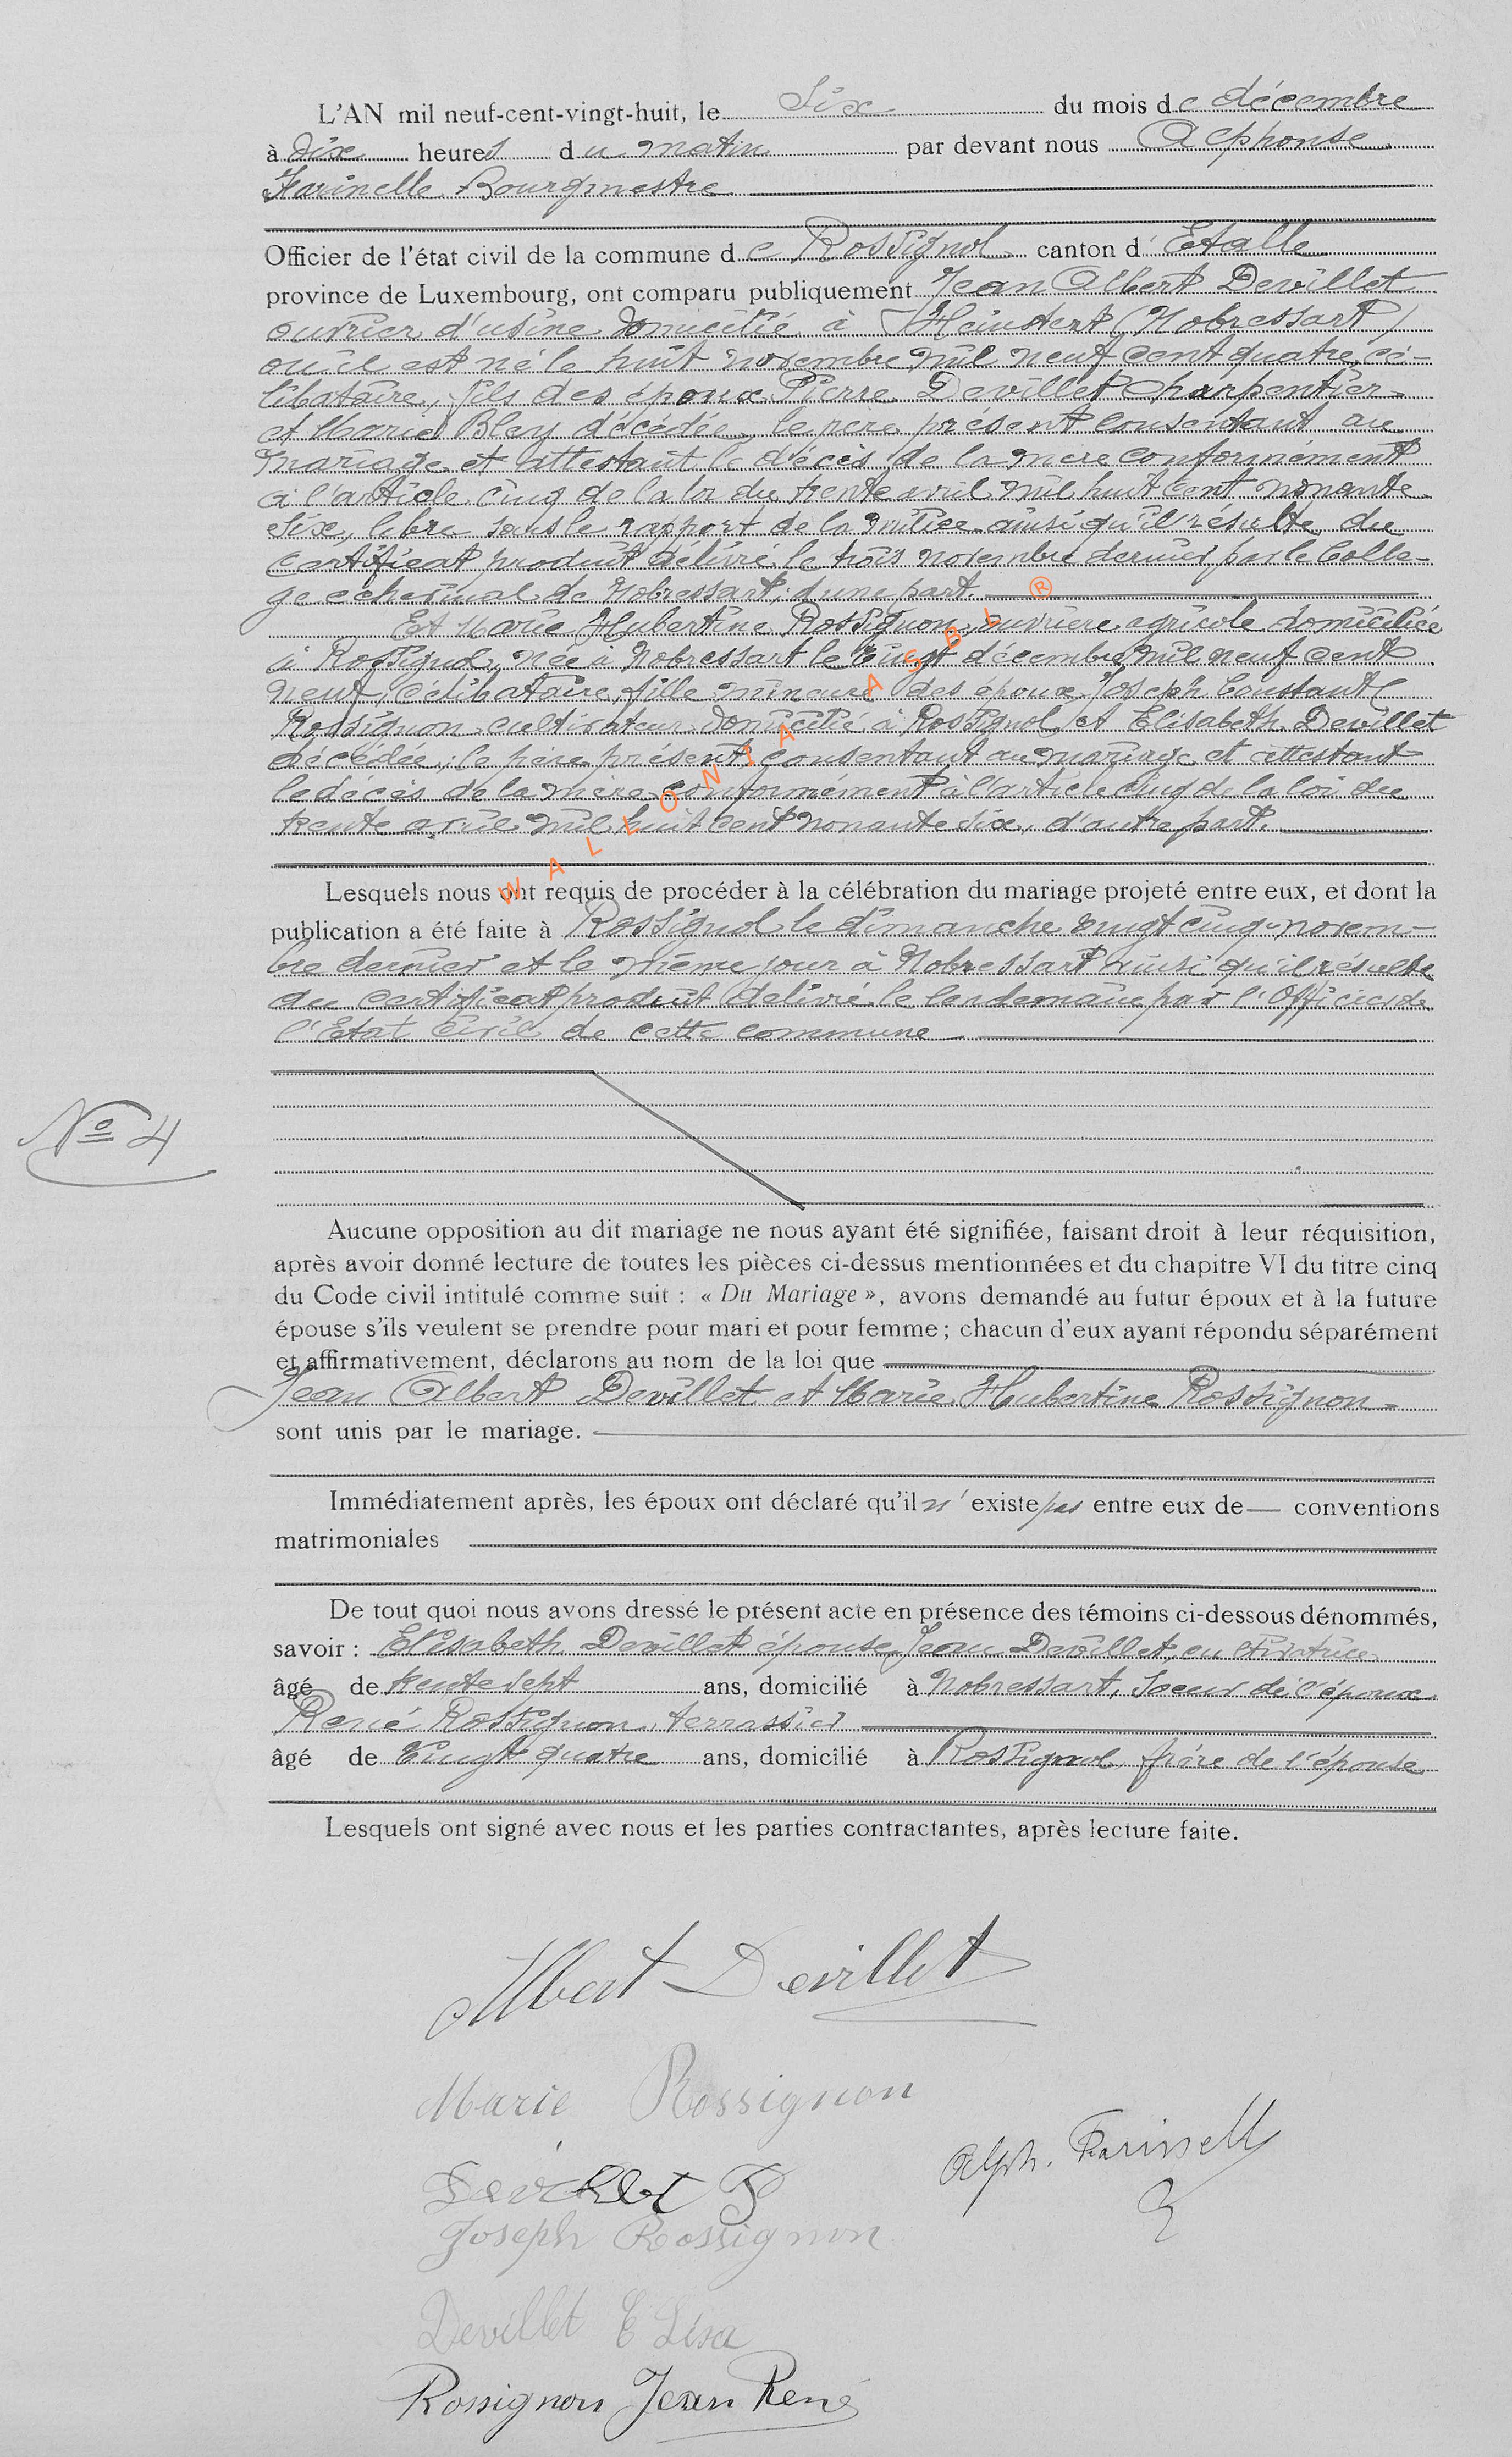 L'AN mil neuf-cent-vingt-huit, le six du mois de décembre
à dix heures du matin par devant nous Alphonse
Farinelle Bourgmestre
Officier de l'état civil de la commune de Rossignol canton d'Etalle
province de Luxembourg, ont comparu publiquement Jean Albert Devillet
ouvrier d'usine domicilié à Heinstert (Nobressart)
où il est né le huit novembre mil neuf cent quatre, cé-
libataire, fils des époux Pierre Devillet charpentier
et Marie Bley décédée, le père présent consentant au
mariage et attestant le décès de la mère conformément
à l'article cinq de la loi du trente avril mil huit cent nonante
six, libre sous le rapport de la milice ainsi qu'il résulte du
certificat produit délivré le trois novembre dernier par le Collè-
ge échevinal de Nobressart, d'une part.
Et Marie Hubertine Rossignon, ouvrière agricole domiciliée
à Rossignol, née à Nobressart le vingt décembre mil neuf cent
neuf, célibataire, fille mineure des époux Joseph Constant
Rossignon cultivateur domicilié à Rossignol et Elisabeth Devillet
décédée, le père présent, consentant au mariage et attestant
le décès de la mère conformément à l'article cinq de la loi du
trente avril mil huit cent nonante six, d'autre part.
WALLONIA ASBL ®
Lesquels nous ont requis de procéder à la célébration du mariage projeté entre eux, et dont la
publication a été faite à Rossignol le dimanche vingt cinq novem-
bre dernier et le même jour à Nobressart ainsi qu'il résulte
du certificat produit délivré le lendemain par l'Officier de
l'Etat Civil de cette commune
No 4
Aucune opposition au dit mariage ne nous ayant été signifiée, faisant droit à leur réquisition,
après avoir donné lecture de toutes les pièces ci-dessus mentionnées et du chapitre VI du titre cinq
du Code civil intitulé comme suit : « Du Mariage », avons demandé au futur époux et à la future
épouse s'ils veulent se prendre pour mari et pour femme ; chacun d'eux ayant répondu séparément
et affirmativement, déclarons au nom de la loi que
Jean Albert Devillet et Marie Hubertine Rossignon
sont unis par le mariage.
Immédiatement après, les époux ont déclaré qu'il n'existe pas entre eux de — conventions
matrimoniales
De tout quoi nous avons dressé le présent acte en présence des témoins ci-dessous dénommés,
savoir : Elisabeth Devillet épouse Jean Devillet, cultivatrice
âgé de trente sept ans, domicilié à Nobressart, soeur de l'époux
René Rossignon, terrassier
âgé de vingt quatre ans, domicilié à Rossignol, frère de l'épouse
Lesquels ont signé avec nous et les parties contractantes, après lecture faite.
Albert Devillet
Marie Rossignon
Alph. Farinelle
Devillet P
Joseph Rossignon
Devillet Elisa
Rossignon Jean René